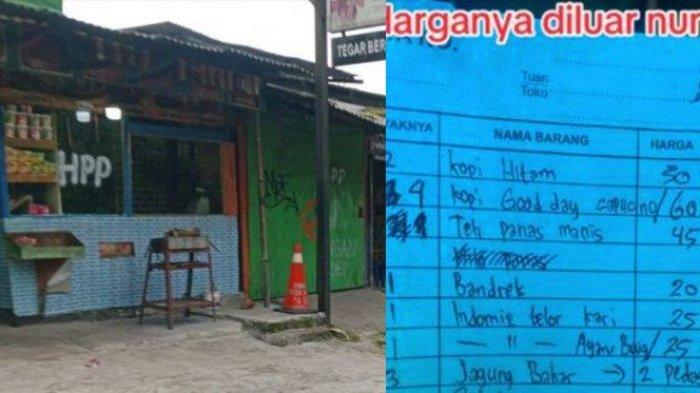 TEGAR BER
HPP
Harganya diluar nur
Tuan
Toko
YAKNYA NAMA BARANG HARGA
2 kopi Hitam 30
4 kopi Good day capucino 60
Teh panas manis 45
1 Bandrek 20
1 Indomie telor kari 25
1 — 11 — Ayam Bawg 25
3 Jagung Bakar → 2 Pedas